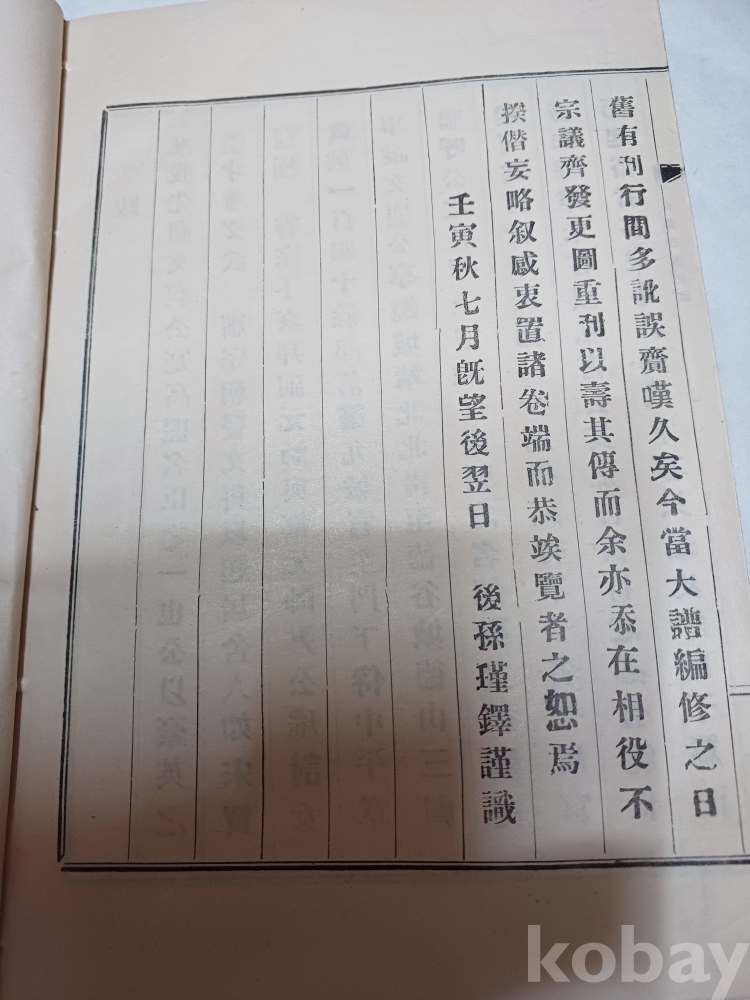 舊有刊行間多訛誤齋嘆久矣今當大譜編修之日
宗議齊發更圖重刊以壽其傳而余亦忝在相役不
揆僭妄略叙感衷置諸卷端而恭竢覽者之恕焉
壬寅秋七月旣望後翌日 後孫瑾鐸謹識
kobay